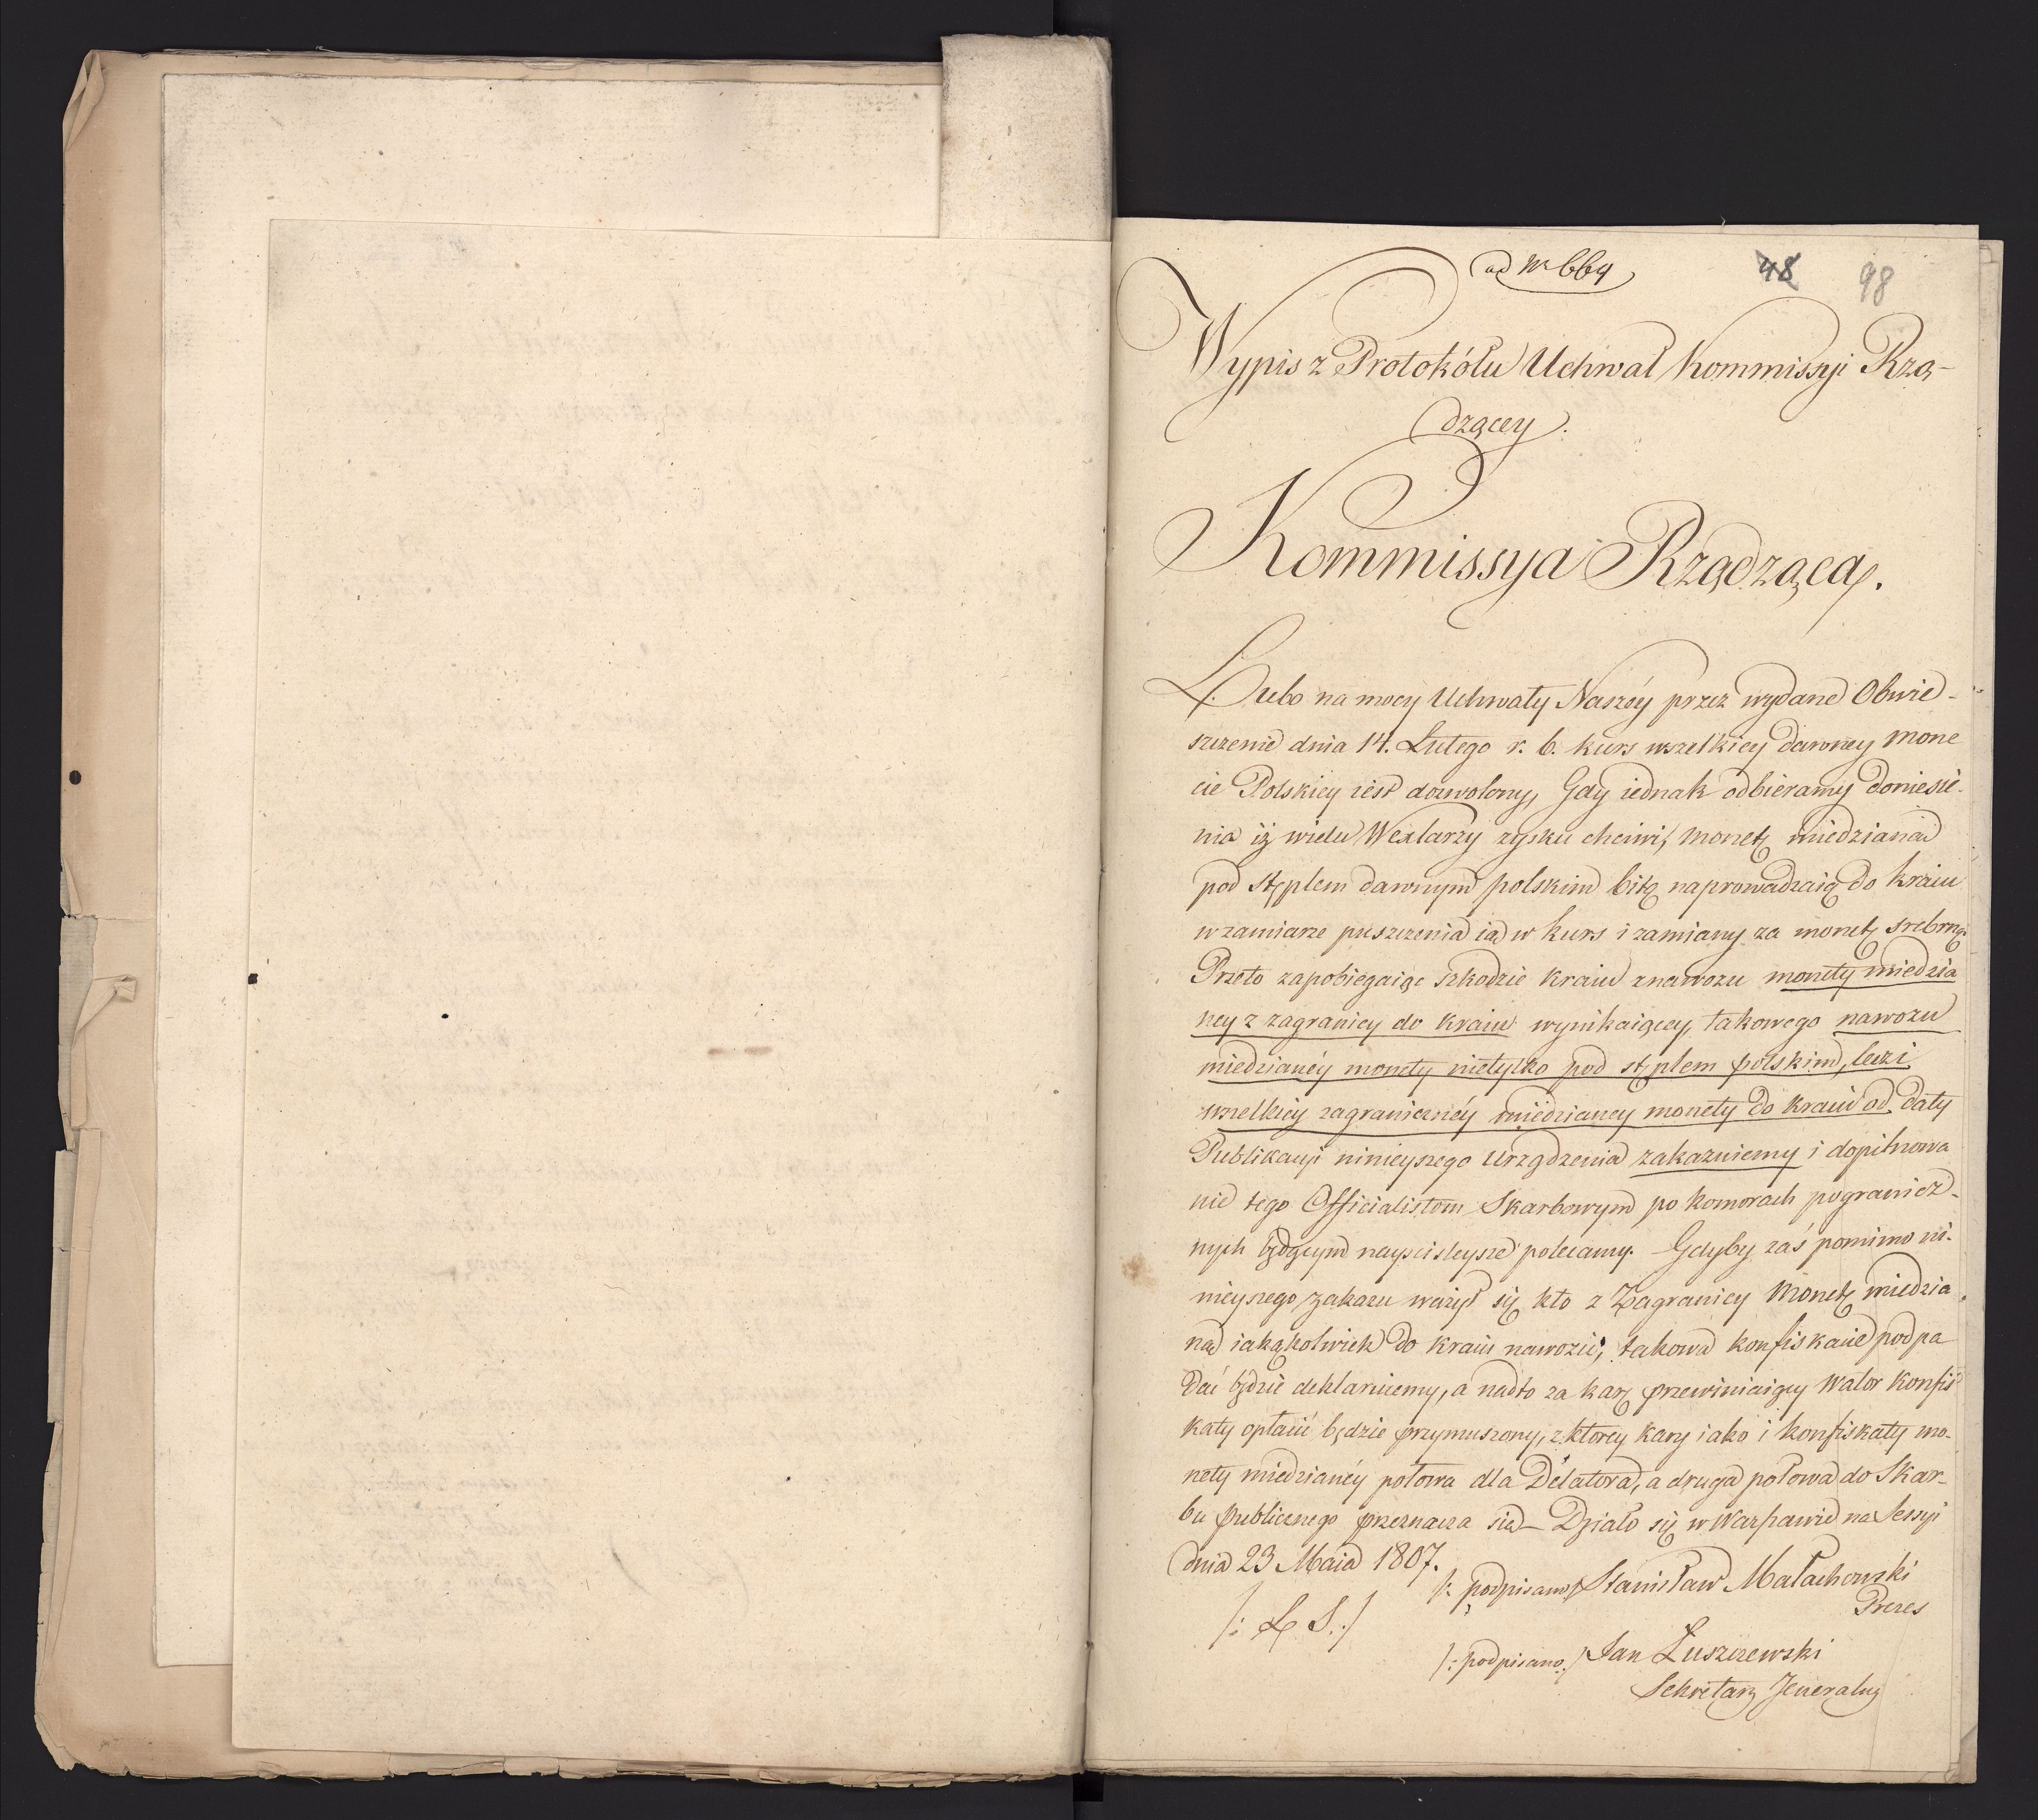 ad Nr 664
48 98
Wypis z Protokółu Uchwał Kommissyi Rzą-
dzącey.
Kommissya Rządząca.
Lubo na mocy Uchwały Naszéy przez wydane Obwie-
szczenie dnia 14. Lutego r. b. kurs wszelkiey dawney mone
cie Polskiey iest dozwolony, Gdy iednak odbieramy doniesie-
nia iż wielu Wexlarzy zysku chciwi, monetę miedzianą
pod stęplem dawnym polskim bitą naprowadzaią do kraiu
w zamiarze puszczenia ią w kurs i zamiany za monetę srebrną.
Przeto zapobiegaiąc szkodzie kraiu z nawozu monety miedzia
ney z zagranicy do kraiu wynikaiącey, takowego nawozu
miedzianéy monety nietylko pod stęplem polskim, lecz i
wszelkiey zagranicznéy miedzianey monety do kraiu od daty
Publikacyi ninieyszego Urządzenia zakazuiemy i dopilnowa
nie tego Officialistom Skarbowym po komorach pogranicz-
nych będącym nayscisleysze polecamy. Gdyby zaś pomimo ni-
nieyszego zakazu ważył się kto z Zagranicy monetę miedzia
ną iakąkolwiek do kraiu nawozić, takowa konfiskacie podpa
dać będzie deklaruiemy, a nadto za karę przewiniaiący walor konfis
katy opłacić będzie przymuszony, z ktorey kary iako i konfiskaty mo-
nety miedzianéy połowa dla Delatora, a druga połowa do Skar-
bu publicznego przeznacza się – Działo się w Warszawie na Sessyi
dnia 23 Maia 1807.
/: podpisano:/ Stanisław Małachowski
Prezes
/: L. S. :/
/: podpisano:/ Jan Łuszczewski
Sekretarz Jeneralny